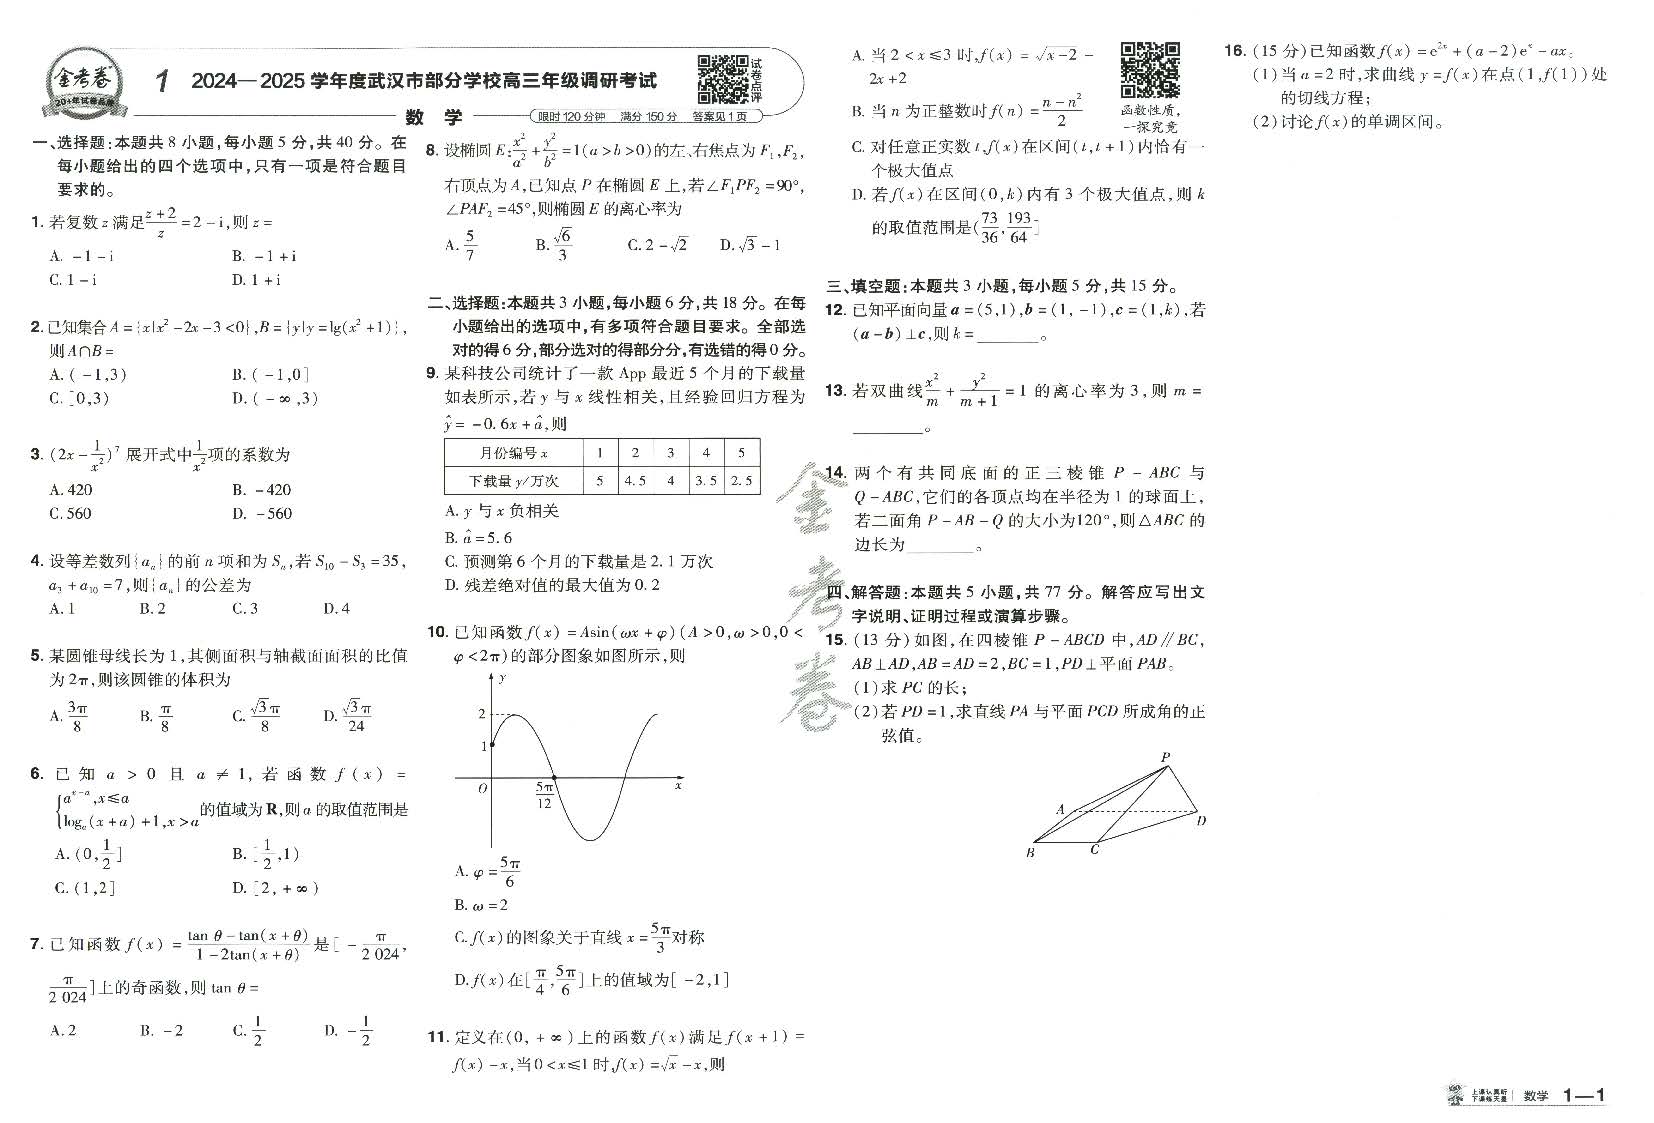 金考卷
20+年试卷品牌
1 2024—2025学年度武汉市部分学校高三年级调研考试
试卷点评
数 学
限时120分钟 满分150分 答案见1页
一、选择题:本题共8小题,每小题5分,共40分。在
每小题给出的四个选项中,只有一项是符合题目
要求的。
1. 若复数z满足(z+2)/z=2-i,则z=
A. -1-i B. -1+i
C. 1-i D. 1+i
2. 已知集合A={x|x²-2x-3<0},B={y|y=lg(x²+1)},
则A∩B=
A. (-1,3) B. (-1,0]
C. [0,3) D. (-∞,3)
3. (2x-1/x²)⁷展开式中1/x²项的系数为
A. 420 B. -420
C. 560 D. -560
4. 设等差数列{aₙ}的前n项和为Sₙ,若S₁₀-S₃=35,
a₃+a₁₀=7,则{aₙ}的公差为
A. 1 B. 2 C. 3 D. 4
5. 某圆锥母线长为1,其侧面积与轴截面面积的比值
为2π,则该圆锥的体积为
A. 3π/8 B. π/8 C. √3π/8 D. √3π/24
6. 已知a>0且a≠1,若函数f(x)=
{aˣ⁻ᵃ,x≤a
logₐ(x+a)+1,x>a 的值域为R,则a的取值范围是
A. (0,1/2] B. [1/2,1)
C. (1,2] D. [2,+∞)
7. 已知函数f(x)=(tan θ-tan(x+θ))/(1-2tan(x+θ))是[-π/2 024,
π/2 024]上的奇函数,则tan θ=
A. 2 B. -2 C. 1/2 D. -1/2
8. 设椭圆E:x²/a²+y²/b²=1(a>b>0)的左、右焦点为F₁,F₂,
右顶点为A,已知点P在椭圆E上,若∠F₁PF₂=90°,
∠PAF₂=45°,则椭圆E的离心率为
A. 5/7 B. √6/3 C. 2-√2 D. √3-1
二、选择题:本题共3小题,每小题6分,共18分。在每
小题给出的选项中,有多项符合题目要求。全部选
对的得6分,部分选对的得部分分,有选错的得0分。
9. 某科技公司统计了一款App最近5个月的下载量
如表所示,若y与x线性相关,且经验回归方程为
ŷ=-0.6x+â,则
月份编号x 1 2 3 4 5
下载量y/万次 5 4.5 4 3.5 2.5
A. y与x负相关
B. â=5.6
C. 预测第6个月的下载量是2.1万次
D. 残差绝对值的最大值为0.2
10. 已知函数f(x)=Asin(ωx+φ)(A>0,ω>0,0<
φ<2π)的部分图象如图所示,则
y
2
1
O 5π/12 x
A. φ=5π/6
B. ω=2
C. f(x)的图象关于直线x=5π/3对称
D. f(x)在[π/4,5π/6]上的值域为[-2,1]
11. 定义在(0,+∞)上的函数f(x)满足f(x+1)=
f(x)-x,当0<x≤1时,f(x)=√x-x,则
A. 当2<x≤3时,f(x)=√(x-2)-
2x+2
B. 当n为正整数时f(n)=(n-n²)/2
函数性质,
一探究竟
C. 对任意正实数t,f(x)在区间(t,t+1)内恰有一
个极大值点
D. 若f(x)在区间(0,k)内有3个极大值点,则k
的取值范围是(73/36,193/64]
三、填空题:本题共3小题,每小题5分,共15分。
12. 已知平面向量a=(5,1),b=(1,-1),c=(1,k),若
(a-b)⊥c,则k=______。
13. 若双曲线x²/m+y²/(m+1)=1的离心率为3,则m=
______。
14. 两个有共同底面的正三棱锥P-ABC与
Q-ABC,它们的各顶点均在半径为1的球面上,
若二面角P-AB-Q的大小为120°,则△ABC的
边长为______。
金考卷
四、解答题:本题共5小题,共77分。解答应写出文
字说明、证明过程或演算步骤。
15. (13分)如图,在四棱锥P-ABCD中,AD∥BC,
AB⊥AD,AB=AD=2,BC=1,PD⊥平面PAB。
(1)求PC的长;
(2)若PD=1,求直线PA与平面PCD所成角的正
弦值。
P
A
D
B C
16. (15分)已知函数f(x)=e²ˣ+(a-2)eˣ-ax。
(1)当a=2时,求曲线y=f(x)在点(1,f(1))处
的切线方程;
(2)讨论f(x)的单调区间。
上课认真听
下课练天星
数学 1—1